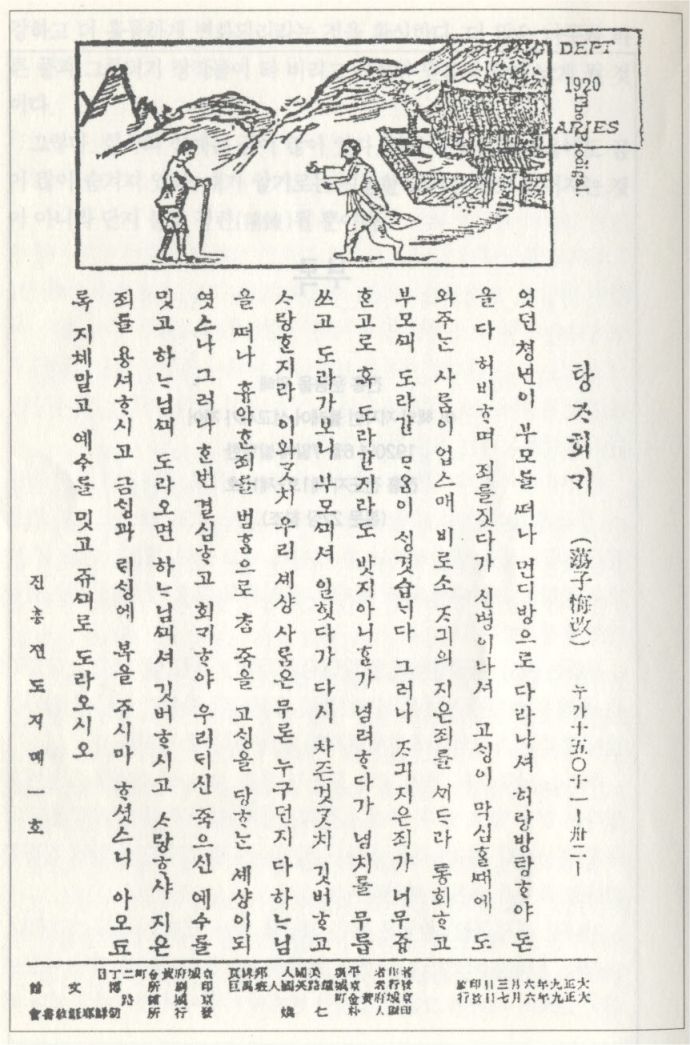 DEPT
1920
ARIES
The Prodigal
탕ᄌᆞ회ᄀᆡ (蕩子悔改) 누가十五○十一―卅二―
엇던 청년이 부모를 떠나 먼디방으로 다라나셔 허랑방탕ᄒᆞ야 돈
을 다 허비ᄒᆞ며 죄를짓다가 신병이나셔 고ᄉᆡᆼ이 막심ᄒᆞᆯ때에 도
와주는 사ᄅᆞᆷ이 업스매 비로소 ᄌᆞ긔의 지은죄를 ᄭᆡᄃᆞ라 통회ᄒᆞ고
부모ᄭᅴ 도라갈 ᄆᆞᄋᆞᆷ이 ᄉᆡᆼ겻습ᄂᆡ다 그러나 ᄌᆞ긔지은죄가 너무즁
ᄒᆞᆫ고로 혹 도라간대도 밧지아니ᄒᆞᆯ가 념려ᄒᆞ다가 념치를 무릅
쓰고 도라가보니 부모ᄭᅴ셔 일헛다가 다시 차즌것ᄀᆞᆺ치 깃버ᄒᆞ고
ᄉᆞ랑ᄒᆞᆫ지라 이와ᄀᆞᆺ치 우리 세상 사ᄅᆞᆷ은 무론 누구던지 다 하ᄂᆞ님
을 떠나 흉악ᄒᆞᆫ죄를 범ᄒᆞᆷ으로 ᄎᆞᆷ 죽을 고ᄉᆡᆼ을 당ᄒᆞᄂᆞᆫ 세샹이되
엿스나 그러나 ᄒᆞᆫ번 결심ᄒᆞ고 회ᄀᆡᄒᆞ야 우리ᄃᆡ신 죽으신 예수를
밋고 하ᄂᆞ님ᄭᅴ 도라오면 하ᄂᆞ님ᄭᅴ셔 깃버ᄒᆞ시고 ᄉᆞ랑ᄒᆞ샤 지은
죄를 용셔ᄒᆞ시고 금ᄉᆡᆼ과 ᄅᆡᄉᆡᆼ에 복을 주시마 ᄒᆞ셧스니 아모됴
록 지체말고 예수를 밋고 쥬ᄭᅴ로 도라오시오
진흥전도지 뎨一호
大正九年六月三日印刷
大正九年六月七日發行